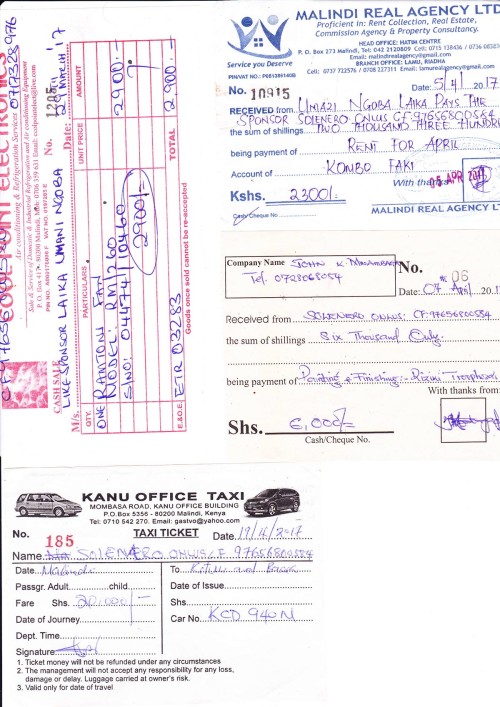 MALINDI REAL AGENCY LTD
Proficient in: Rent Collection, Real Estate,
Commission Agency & Property Consultancy.
HEAD OFFICE: MATIM CENTRE
P. O. Box 373 Malindi, Tel: 042 2120809 Cell: 0715 138436 / 0736 68383
Email: malindirealagency@gmail.com
BRANCH OFFICE: LAMU, RIADHA
Cell: 0737 732576 / 0708 227311 Email: lamurealagency@gmail.com
Service you Deserve
PIN/VAT NO.: P051389140B
No. 10915
Date: 5/4/2017
RECEIVED from UMAZI NGOBA LAIKA PAYS THE
SPONSOR SOLENERO ONLUS CF:97656800584
the sum of shillings TWO THOUSAND THREE HUNDRED
being payment of RENT FOR APRIL
Account of KOMBO FAKI
With thanks 05 APR 2017
Kshs. 2300/-
Cash/Cheque No
MALINDI REAL AGENCY LT
Sale & Service of Domestic & Industrial Refrigeration and Air conditioning Equipment
Air conditioning & Refrigeration Services
0717328976
CASH SALE
No. 1205
Date: 29th MARCH '17
M/s. LIKE SPONSOR LAIKA UMANI NGOBA
QTY. PARTICULARS UNIT PRICE AMOUNT
ONE RAMTONI FAN 2900/-
MODEL: RM/260
S/NO: 044574/10460
2900/-
E.&O.E. Goods once sold cannot be re-accepted TOTAL 2,900/-
ETR 03283
Company Name JOHN K.
Tel. 0728068054
No. 06
Date: 04 April 2017
Received from SOLENERO ONLUS: CF:97656800584
the sum of shillings Six Thousand Only.
being payment of Painting & Finishing:-
With thanks from:
Shs. 6,000/-
Cash/Cheque No.
KANU OFFICE TAXI
MOMBASA ROAD, KANU OFFICE BUILDING
P.O Box 5356 - 80200 Malindi, Kenya
Tel: 0710 542 270. Email: gastvo@yahoo.com
No. 185
TAXI TICKET
Date 19/4/2017
Name SOLENERO ONLUS CF 97656800584
Date Malindi To
Passgr. Adult child Date of Issue
Fare Shs. 20,000/- Shs
Date of Journey Car No. KCD 940M
Dept. Time
Signature
1. Ticket money will not be refunded under any circumstances
2. The management will not accept any responsibility for any loss,
damage or delay. Luggage carried at owner's risk.
3. Valid only for date of travel